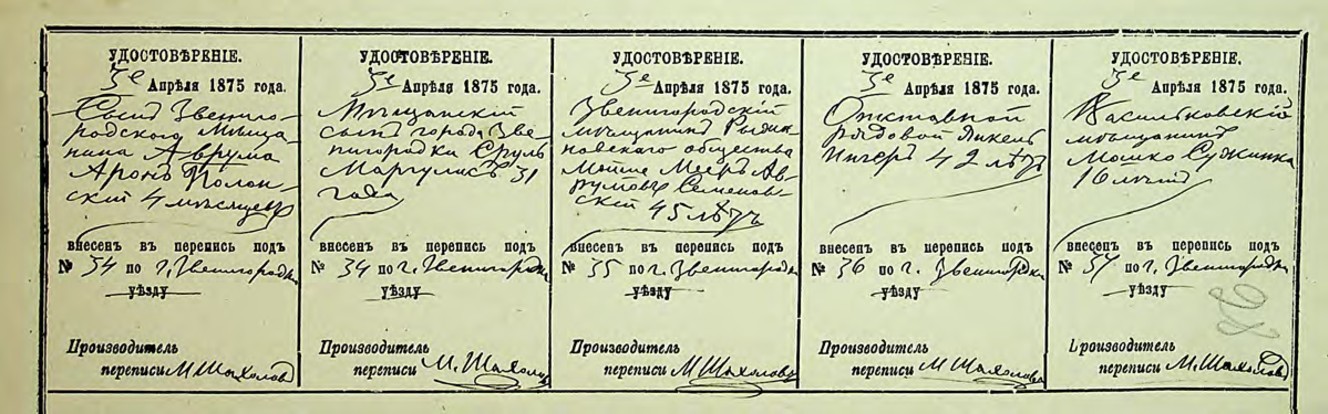 УДОСТОВѢРЕНІЕ.
5е Апрѣля 1875 года.
Сынъ Звениго-
родского Мѣща-
нина Аврума
Аронъ Полон-
скій 4 мѣсяцевъ
внесенъ въ перепись подъ
№ 34 по г. Звенигородкѣ
уѣзду
Производитель
переписи М Шахолова
УДОСТОВѢРЕНІЕ.
5е Апрѣля 1875 года.
Мѣщанскій
сынъ города Зве-
нигородки Сруль
Маргулисъ 31
года
внесенъ въ перепись подъ
№ 34 по г. Звенигородкѣ
уѣзду
Производитель
переписи М. Шахолова
УДОСТОВѢРЕНІЕ.
5е Апрѣля 1875 года.
Звенигородскій
мѣщанинъ Рыжа-
новскаго общества
Мошко Мееръ Ав-
румовъ Семенов-
скій 45 лѣтъ
внесенъ въ перепись подъ
№ 35 по г. Звенигородкѣ
уѣзду
Производитель
переписи М Шахолова
УДОСТОВѢРЕНІЕ.
5е Апрѣля 1875 года.
Отставной
рядовой Янкель
Ингеръ 42 лѣтъ
внесенъ въ перепись подъ
№ 36 по г. Звенигородкѣ
уѣзду
Производитель
переписи М Шахолова
УДОСТОВѢРЕНІЕ.
5е Апрѣля 1875 года.
Васильковскій
мѣщанинъ
Мошко
16 лѣтъ
внесенъ въ перепись подъ
№ 37 по г. Звенигородкѣ
уѣзду
Производитель
переписи М. Шахолова